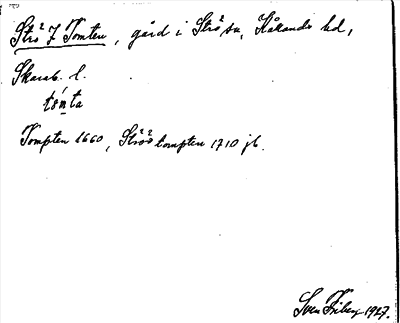 Strö 7 Tomten, gård i Strö sn, Kållands hd,
Skarab. l.
tomta
Tompten 1660, Ströö tompten 1710 jb.
Sven Friberg 1927.